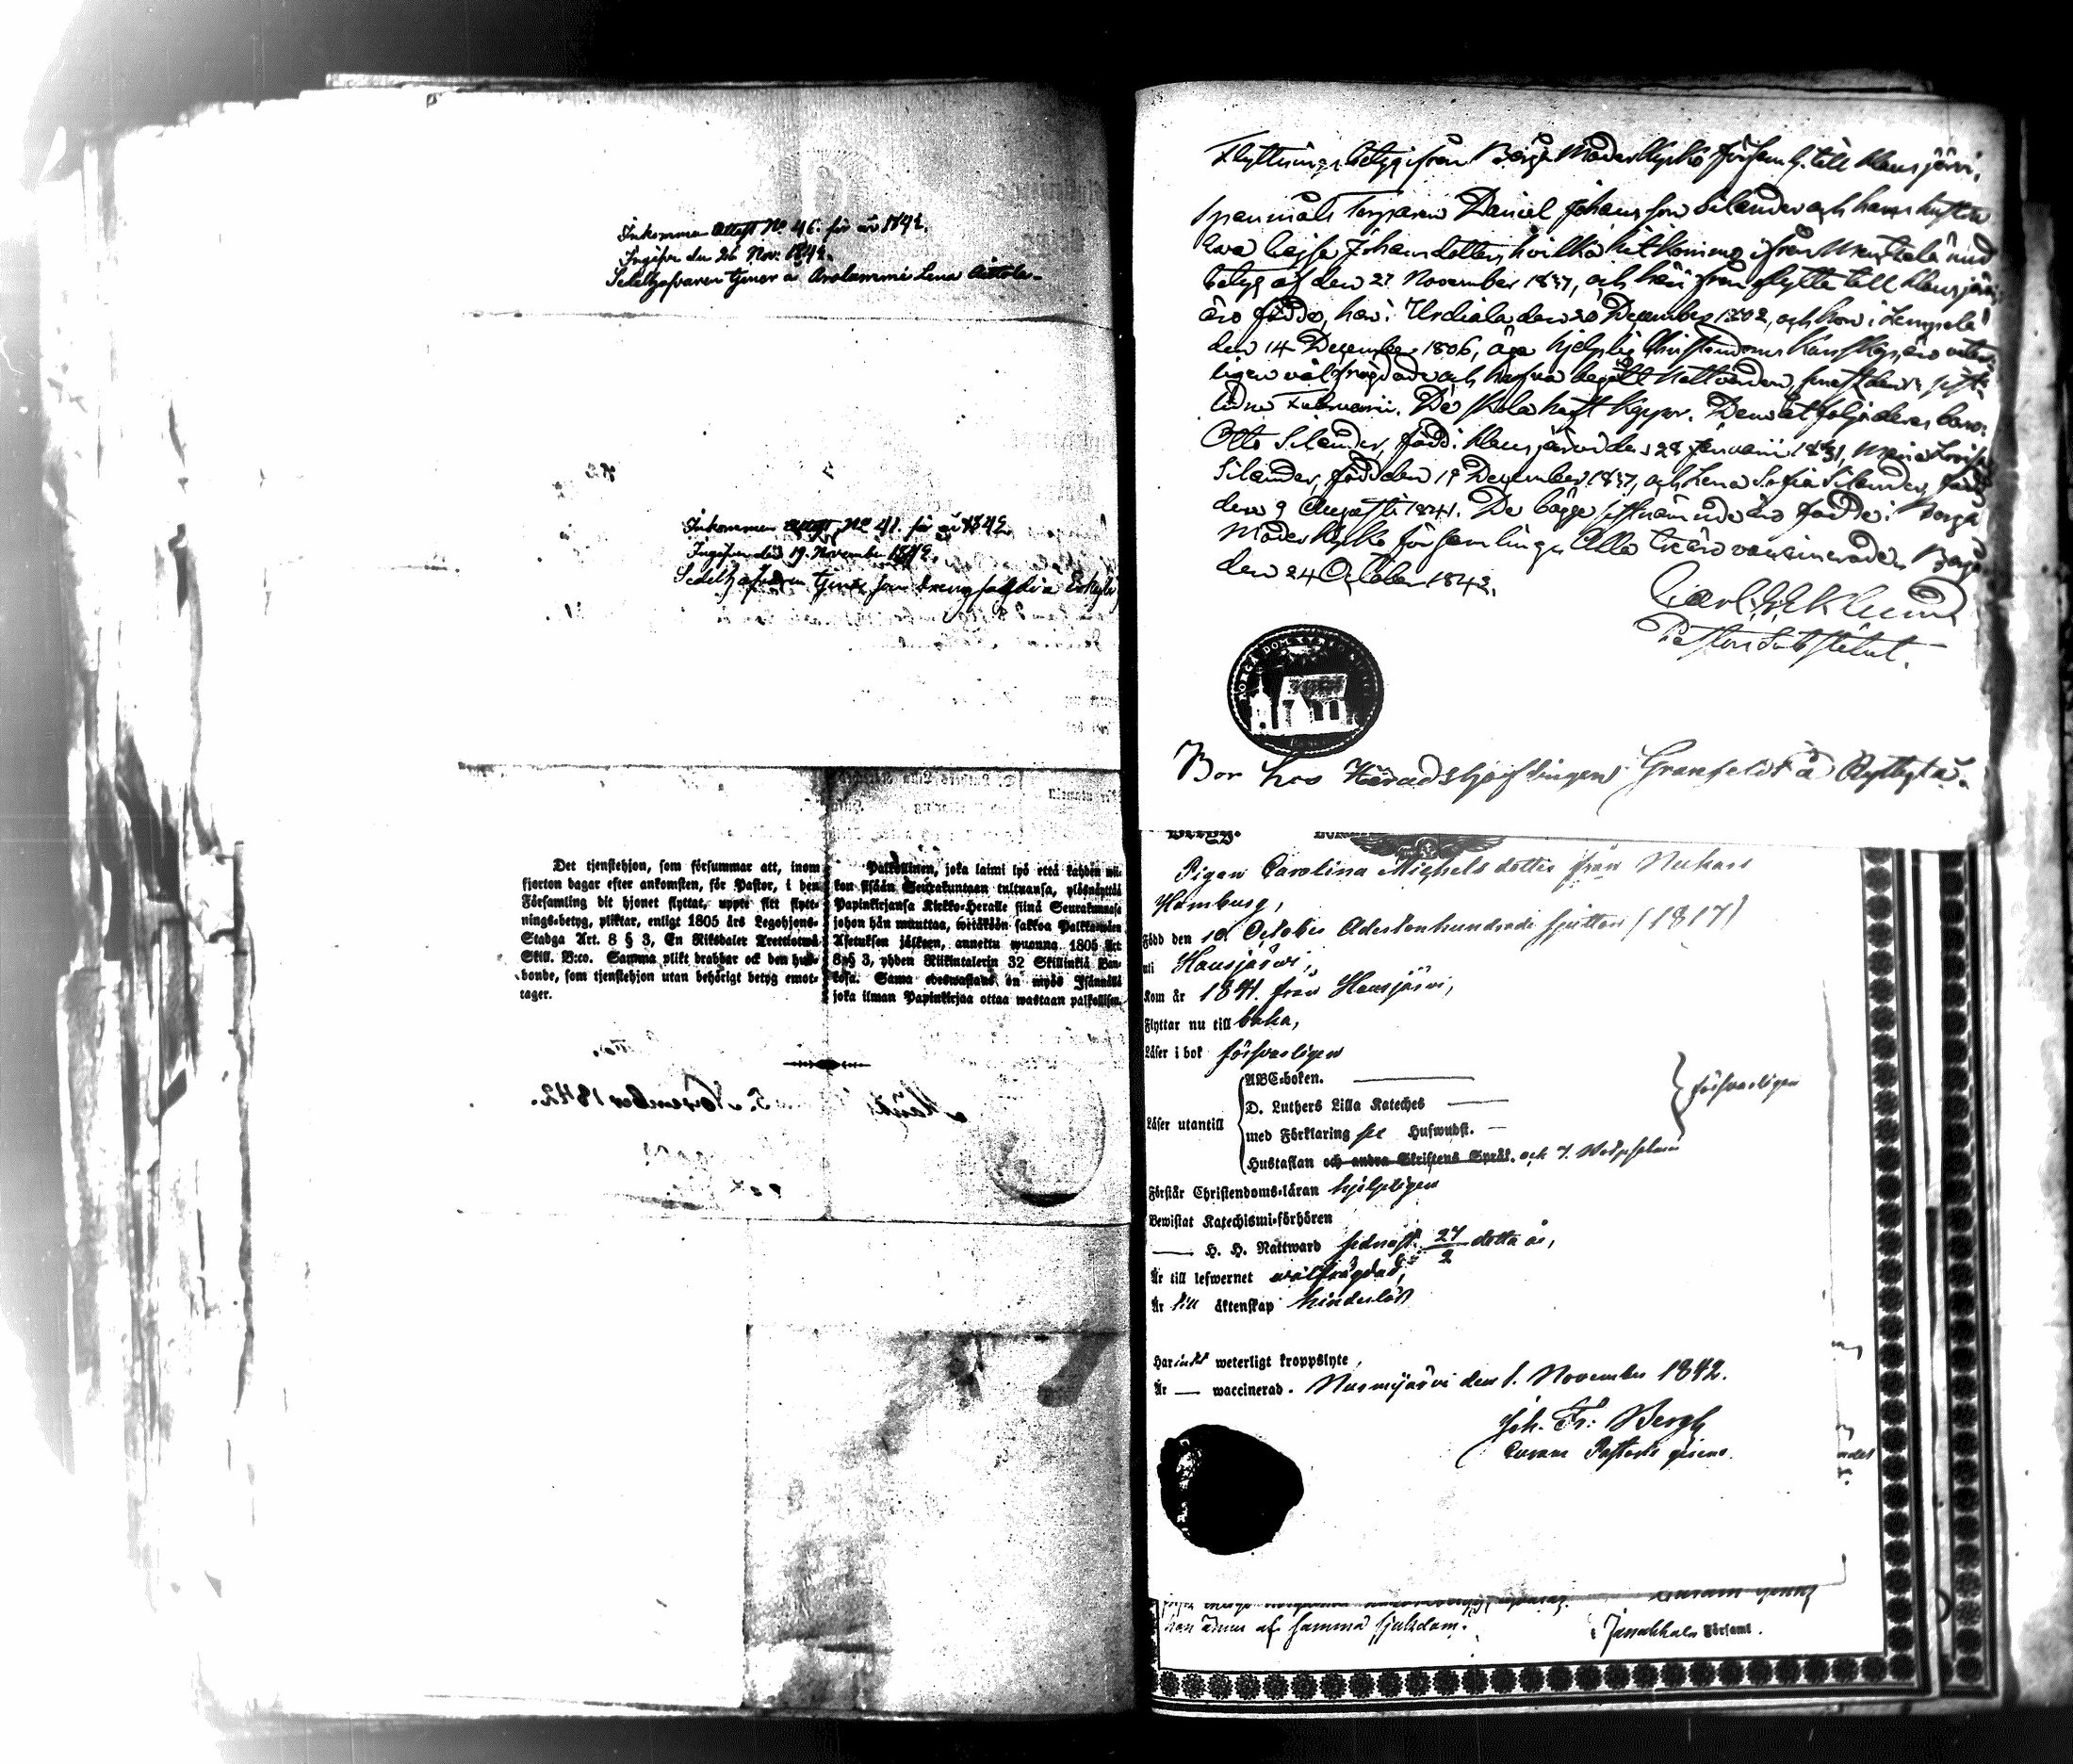 Inkommen Attest No 46. för år 1842.
Ingifven den 26 Nov. 1842.
Sedelhafvaren tjenar a Arolammi Lena
Inkommen Attest No 41. för år 1842
Ingifven den 19. November 1842.
Sedelhafvaren tjenar som dreng
Det tjenstehjon, som försummar att, inom
fjorton dagar efter ankomsten, för Pastor, i den
Församling dit hjonet flyttat, uppte sitt flytt-
nings-betyg, pliktar, enligt 1805 års Legohjons-
Stadga Art. 8 § 3, En Riksdaler Trettiotwå
Skill. B:co. Samma plikt drabbar ock den hus-
bonde, som tjenstehjon utan behörigt betyg emot-
tager.
Palkollinen, joka laimi lyö että kahden wii-
kon sisään Seurakuntaan tultuansa, ylösnäyttää
Papinkirjansa Kirkko-Herralle siinä Seurakunnasa
johon hän muuttaa, wetäköön sakkoa Palkkawäen
Asetuksen jälkeen, annettu wuonna 1805 Art
8 § 3, yhden Riikintalerin 32 Skillinkiä Ban-
kosa. Sama edeswastaus on myös Isännällä
joka ilman Papinkirjaa ottaa wastaan palkollisen.
5. November 1842.
Flyttnings betyg ifrån Borgå Moderkyrko Församl. till Hausjärvi,
Spanmåls Torparen Daniel Johansson Silander och hans hustru
Eva Cajsa Johansdotter, hvilka hit kommo ifrån med
betyg af den 27 November 1837, och härifrån flytta till Hausjärvi,
äro födde, han i Urdiala den 20 December 1802, och hon i Lempälä
den 14 December 1806, äga hjelplig Christendoms Kunskap, äro veter-
ligen välfrägdade och hafva begått Nattvarden, senast den
lidne Februarii. De skola haft Koppor. Dem åtfölja deras barn:
Otto Silander, född i Hausjärvi den 28 Januarii 1831, Maria Lovisa
Silander, född den 19 December 1837, och Lena Sofia Silander, född
den 9 Augusti 1841. De bägge sistnämnde äro födde i Borgå
Moderkyrko församling. Alla tre äro vaccinerade. Borgå
den 24 October 1842.
Carl Eklund
Pastors Substitut.
BORGÅ DOM
Bor hos Häradshöfdingen Granfeldt å Ryttylä.
Betyg.
Pigan Carolina Michelsdotter från Nukars
Hömburg,
Född den 10 October Adertonhundrade sjutton (1817)
uti Hausjärwi,
Kom år 1841. från Hausjärvi,
Flyttar nu till baka,
Läser i bok försvarligen
Läser utantill
ABC-boken.
D. Luthers Lilla Kateches
med Förklaring Huswudst.
försvarligen
Hustaflan och andra Skriftens Språk. och 7.
Förstår Christendoms-läran hjelpligen
Bewistat Katechismi-förhören
H. H. Nattward sednast 27/2 detta år,
Är till lefwernet wälfrägdad,
Är till äktenskap hinderlös
Har intet weterligt kroppslyte,
Är — waccinerad. Nurmijärvi den 1. November 1842.
Joh. Fr: Bergh
Curam Pastoris gerens.
han ännu af samma sjukdom.
i Janakkala Församl.